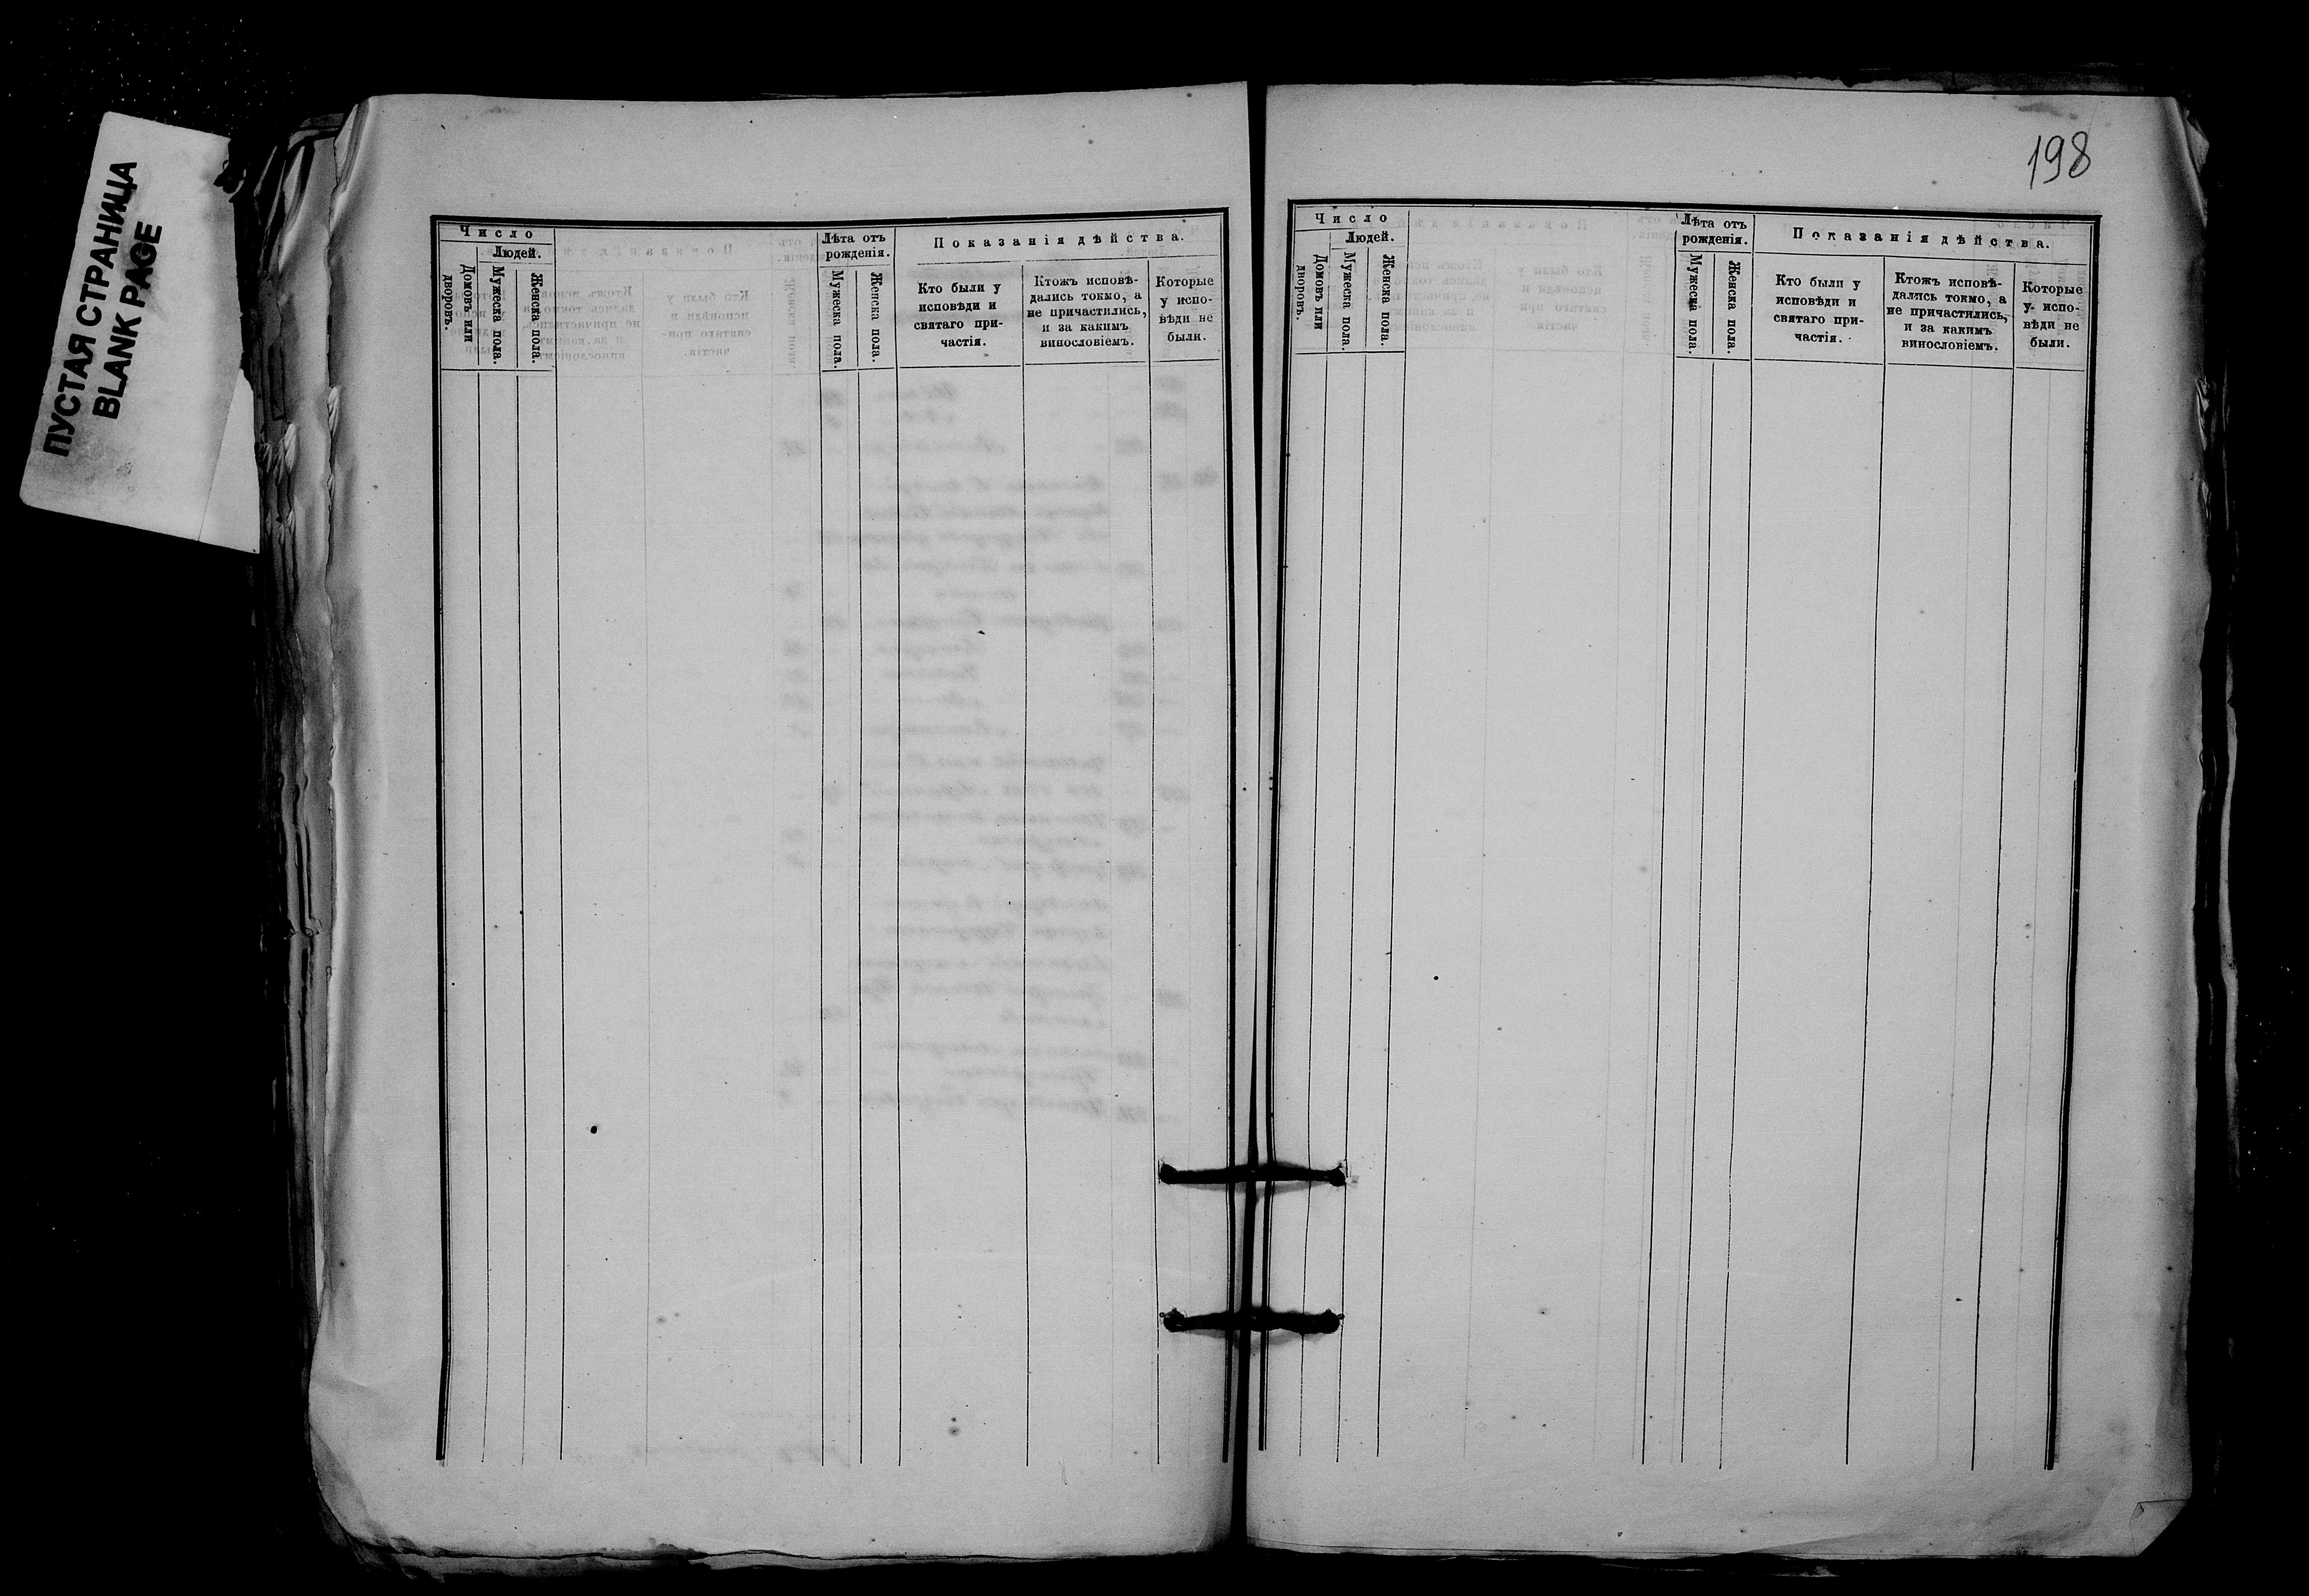 ПУСТАЯ СТРАНИЦА
BLANK PAGE
Число
Людей.
Домовъ или
дворовъ.
Мужеска пола.
Женска пола.
Лѣта отъ
рожденія.
Мужеска пола.
Женска пола.
Показанія дѣйства.
Кто были у
исповѣди и
святаго при-
частія.
Ктожъ исповѣ-
дались токмо, а
не причастились,
и за какимъ
винословіемъ.
Которые
у испо-
вѣди не
были.
198
Число
Людей.
Домовъ или
дворовъ.
Мужеска пола.
Женска пола.
Лѣта отъ
рожденія.
Мужеска пола.
Женска пола.
Показанія дѣйства.
Кто были у
исповѣди и
святаго при-
частія.
Ктожъ исповѣ-
дались токмо, а
не причастились,
и за какимъ
винословіемъ.
Которые
у испо-
вѣди не
были.